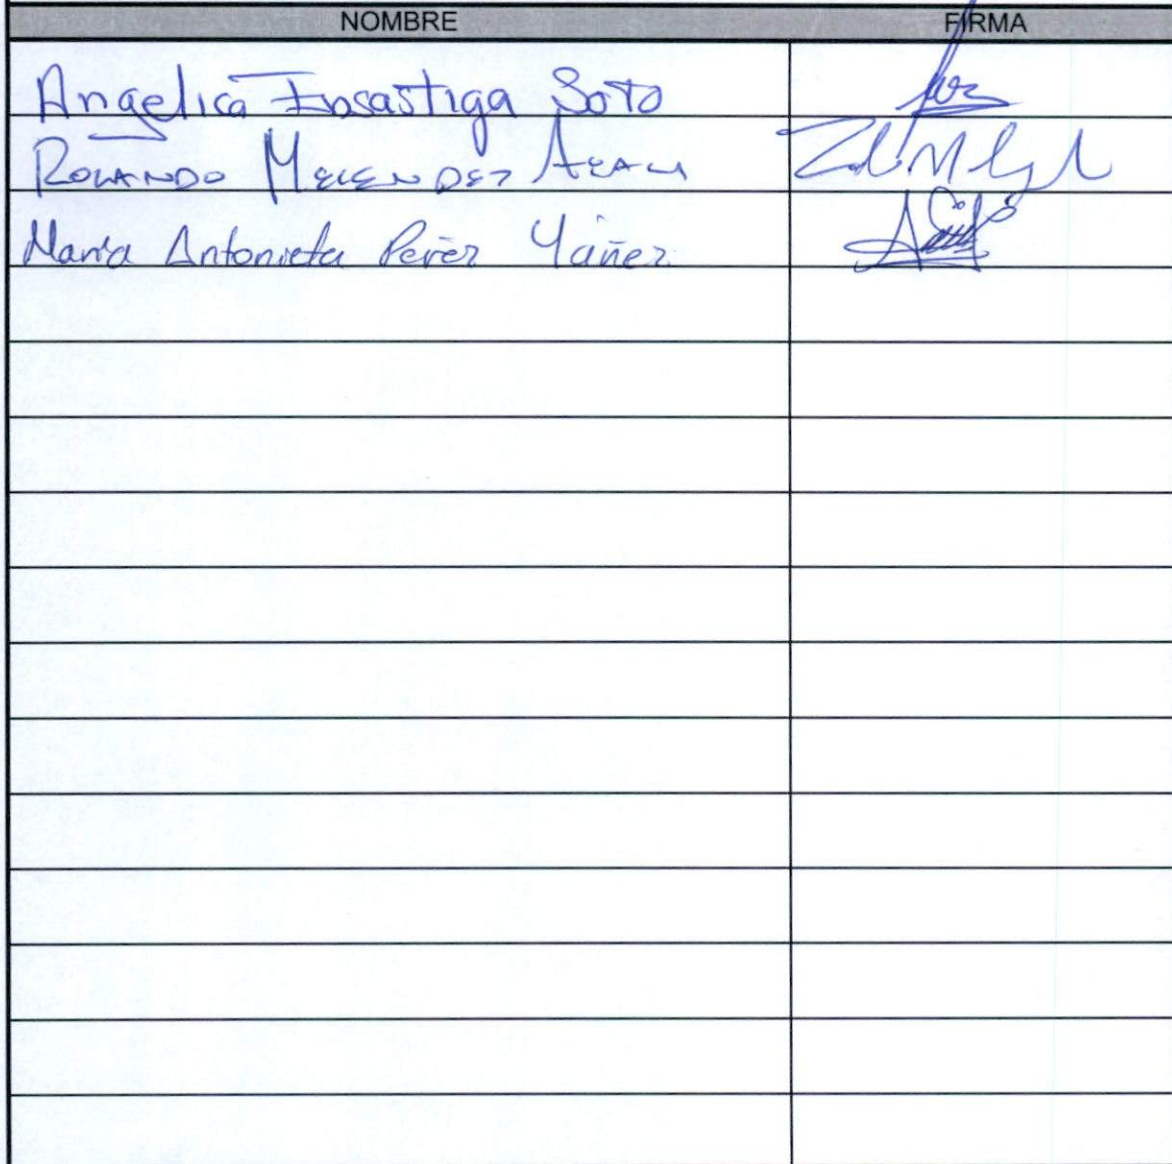 NOMBRE FIRMA
Angelica Insastiga Soto
Rolando Melendez
Maria Antonieta Perez Yañez